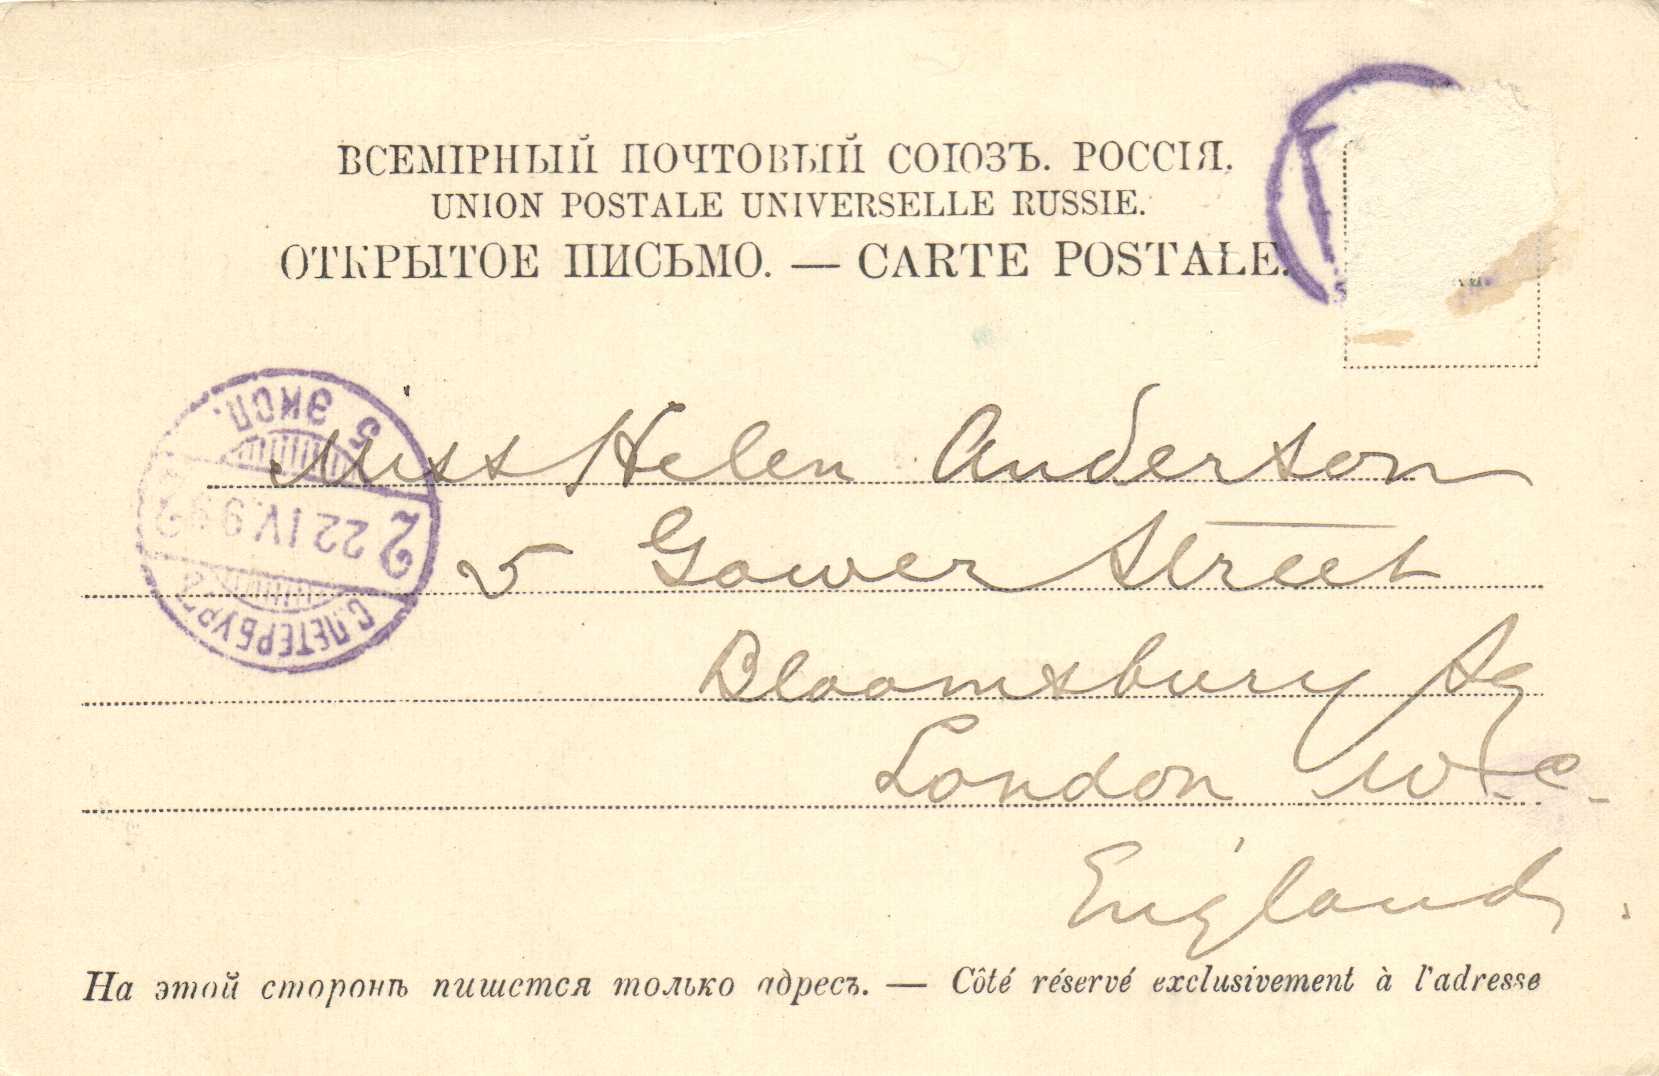 ВСЕМІРНЫЙ ПОЧТОВЫЙ СОЮЗЪ. РОССІЯ.
UNION POSTALE UNIVERSELLE RUSSIE.
ОТКРЫТОЕ ПИСЬМО. — CARTE POSTALE.
5 ЭКСП.
2 22 IV.99 2
С.ПЕТЕРБУРГЪ
Miss Helen Anderson
5 Gower Street
Bloomsbury Sq
London W.C.
England.
На этой сторонѣ пишется только адресъ. — Côté réservé exclusivement à l'adresse